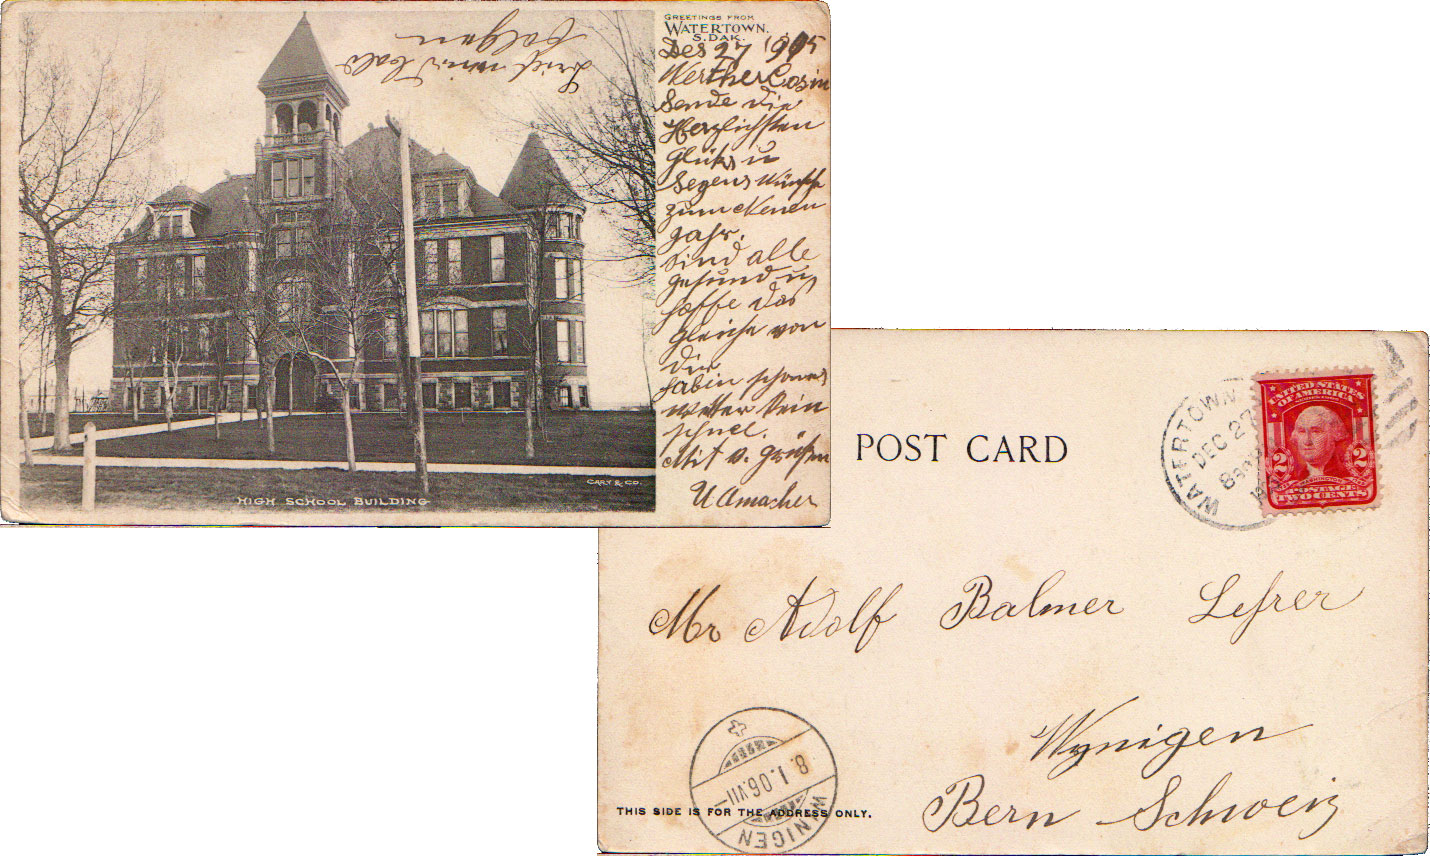 GREETINGS FROM
WATERTOWN.
S. DAK.
Des 27 1905
Werther Cosin
Sende die
Herzlichsten
Glüks u
Segens Wünsche
zum Neuen
Jahr.
Sind alle
gesund u
hoffe das
Gleiche von
Dir
habin schones
Wetter kein
schnee.
Mit v. Grüßen
U Amacher
Brief wird bald
folgen
CARY & CO.
HIGH SCHOOL BUILDING
POST CARD
WATERTOWN
DEC 27
UNITED STATES
OF AMERICA
2 2
POSTAGE
TWO CENTS
Mr Adolf Balmer Lehrer
Wynigen
Bern Schweiz
8.1.06.VII
WYNIGEN
THIS SIDE IS FOR THE ADDRESS ONLY.